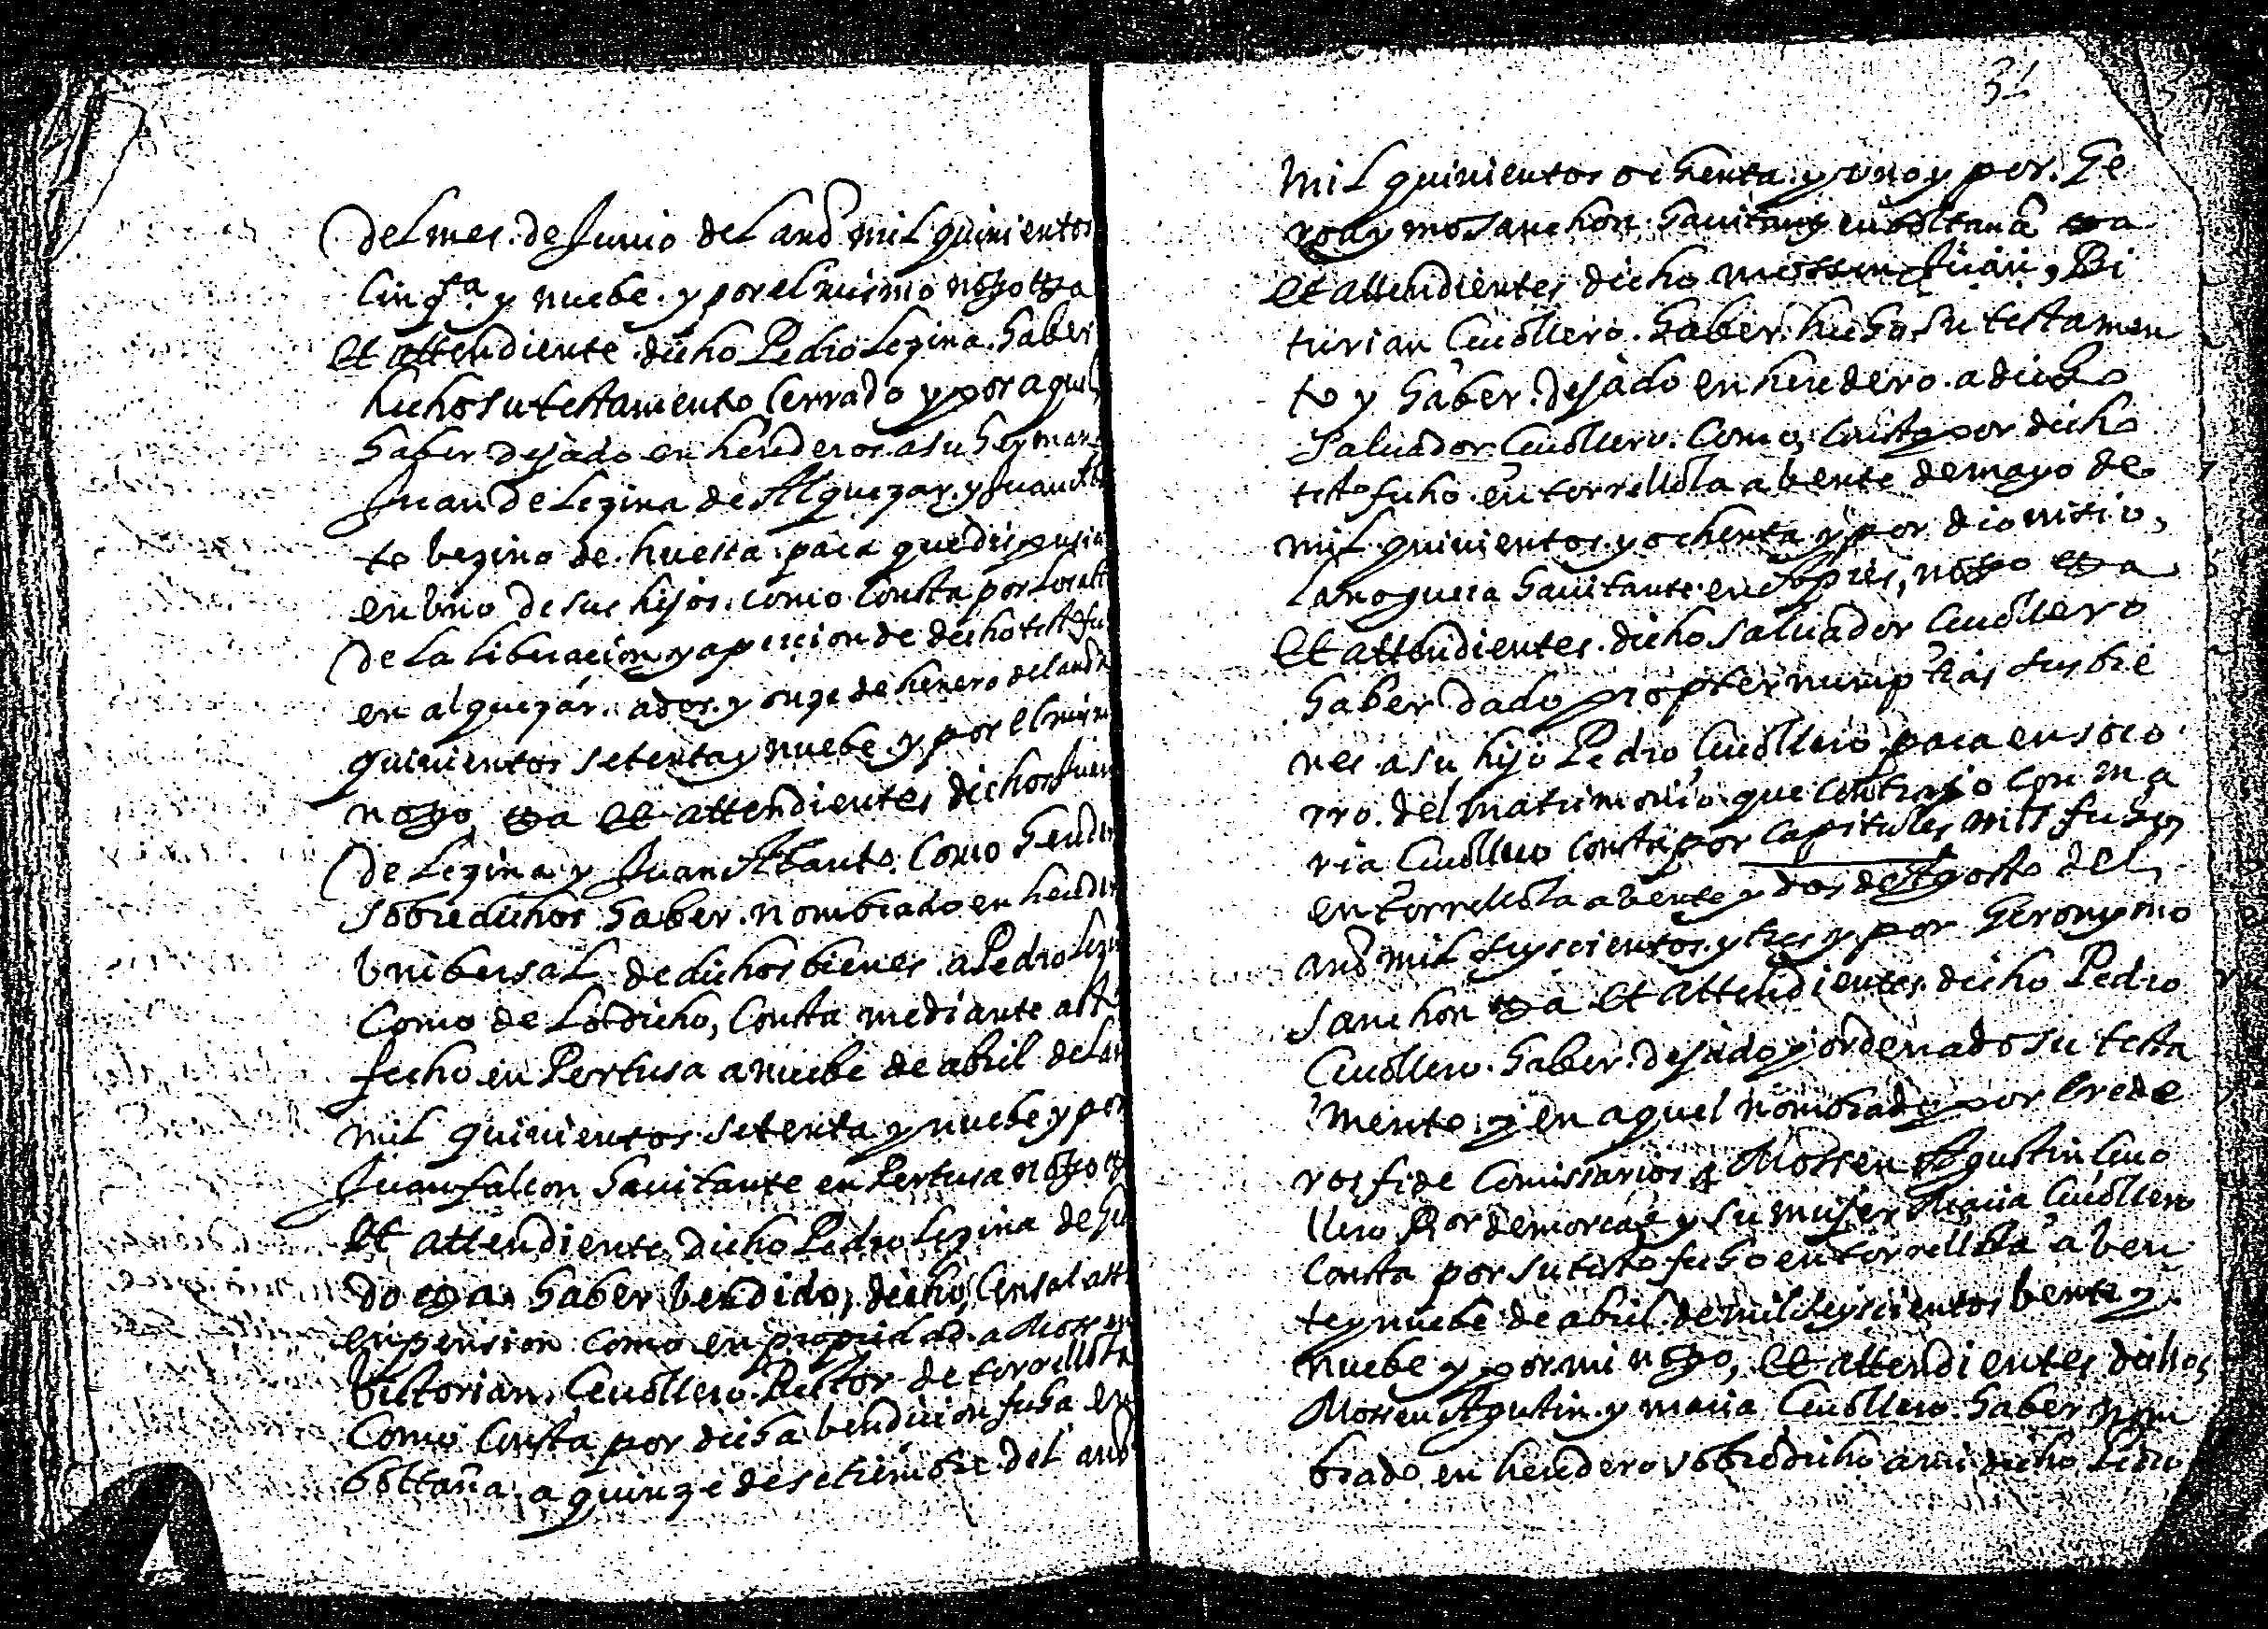 del mes de Junio del anõ mil quinientos
Cinqta y nuebe y por el mismo noto
et attendiente dicho Pedro Lezina haber
hecho su testamento Cerrado y por aquel
haber dejado en herederos a su hermano
Juan de Lezina de Alquezar y Juan
to bezino de huesca para que dispusie
en uno de sus hijos como Consta por
de la liberacion y apercion de dicho testo
en alquezar a dos y onze de henero del
quinientos setenta y nuebe y por el mismo
noto et attendientes dichos Juan
de Lezina y Juan Como
sobredichos haber nombrado en hereder
Unibersal de dichos bienes a Pedro Lezi
Como de Lo dicho, Consta mediante
fecho en Pertusa a nuebe de abril del an
mil quinientos setenta y nuebe y por
Juan falcon havitante en Pertusa noto
et attendiente dicho Pedro Lezina
do haber bendido, dicho Censal
en pension como en propiedad a Mossen
bictorian Cevollero Rector de torrellola
Como Consta por dicha bendicion fecha en
boltaña a quinze de setiembre del anõ
31
mil quinientos ochenta y uno y por Ge
ronymo Sanchon havitante en boltana
et attendientes dicho mossen Juan, Bi
turian Cevollero haber hecho su testamen
to y haber dejado en heredero a dicho
Salvador Cevollero Como, Consta por dicho
testo fecho en torrellola a bente de mayo de
mil quinientos y ochenta y por dionisio,
Lanoguera havitante en noto
et attendientes dicho Salvador Cevollero
haber dado propter numptias sus bie
nes a su hijo Pedro Cevollero para en soco
rro del matrimonio que contrajo con ma
ria Cevollero Consta por Capitules fechos
en torrellola a bente y dos de Agosto del
anõ mil seyscientos y tres y por Geronymo
Sanchon et attendientes dicho Pedro
Cevollero haber dejado y ordenado su testa
mento y en aquel nombrado por erede
ros fide Comissarios a Mossen Agustin Cevo
llero Ror de morcat y su mujer Maria Cevollero
Consta por su testo fecho en torrellola a ben
te y nuebe de abril de mil seyscientos bente y
nuebe y por mi noto, et attendientes dichos
Mossen Agustin y maria Cevollero haber nom
brado en heredero sobredicho a mi dicho Pedro